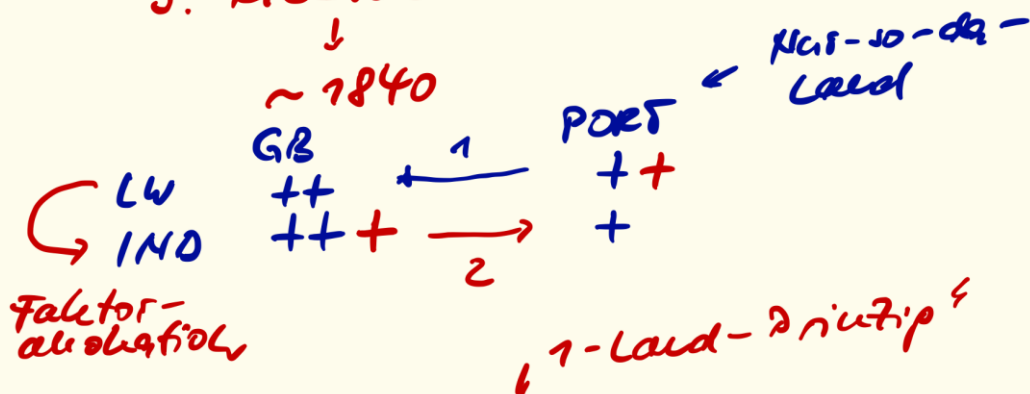 ~ 1840
Nur-so-da-
Land
GB 1 PORT
LW ++ ++
IND +++ 2 +
Faktor-
allokation
"1-Land-Prinzip"